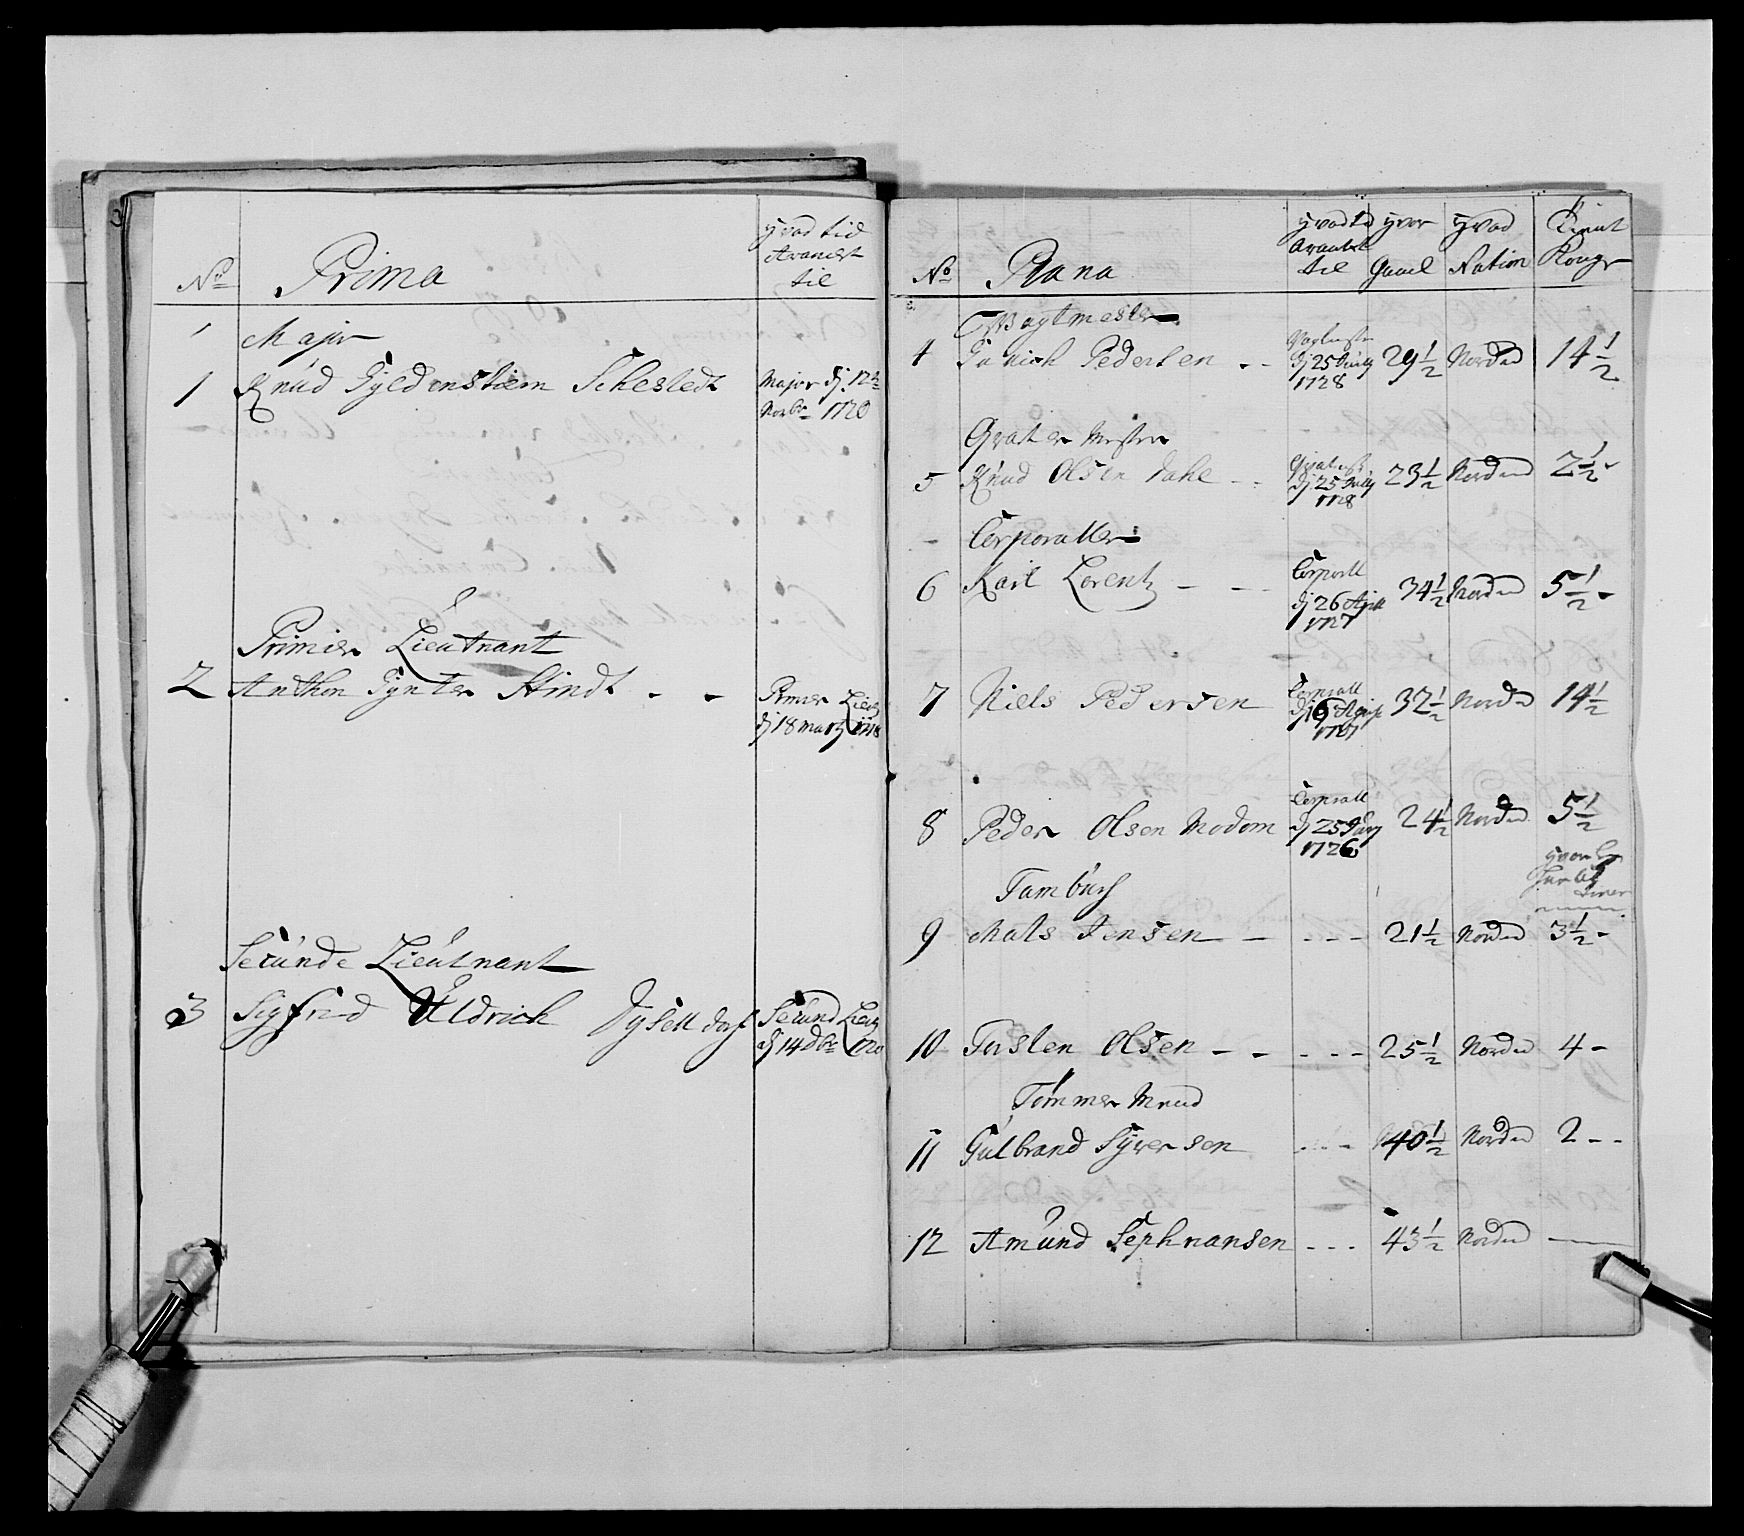 No Prima
hvad tid
Avancert
til
Major
1 Knud Gyldenstiern Schestedt
Major dj 12te
Novbr 1720
Primier Lieutnant
2 Anthon Gynter Stindt - -
Primier Lieut
dj 18 Martj 1718
Secunde Lieutnant
3 Sigfrid Uldrich Dyseldorf
Secund Lieut
dj 14 Dbr 1720
No Plana
hvad tid
Avancert
til
hvor
Gamel
hvad
Nation
Tient
Kong
Wagtmester
4 Janich Pedersen - -
dj 25 July
1728
29 1/2 Nord 14 1/2
Qvarter Mester
5 Knud Olsen Dahl - -
dj 25 July
1728
23 1/2 Nord 2 1/2 -
Corporaller
6 Karl Lorentz - -
Corporall
dj 26 Aprill
1727
34 1/2 Nord 5 1/2 -
7 Niels Pedersen
Corporall
1727
32 1/2 Nord 14 1/2
8 Peder Olsen Modom
Corporall
dj 25
1726
24 1/2 Nord 5 1/2
Tamburs
9 Mats Jensen - - - - - 21 1/2 Nord 3 1/2 -
10 Torsten Olsen - - - - - 25 1/2 Nord 4 -
Tømmer Mend
11 Gulbrand Syversen - - - 40 1/2 Nord 2 - -
12 Amund Stephnansen - - - 43 1/2 Nord —